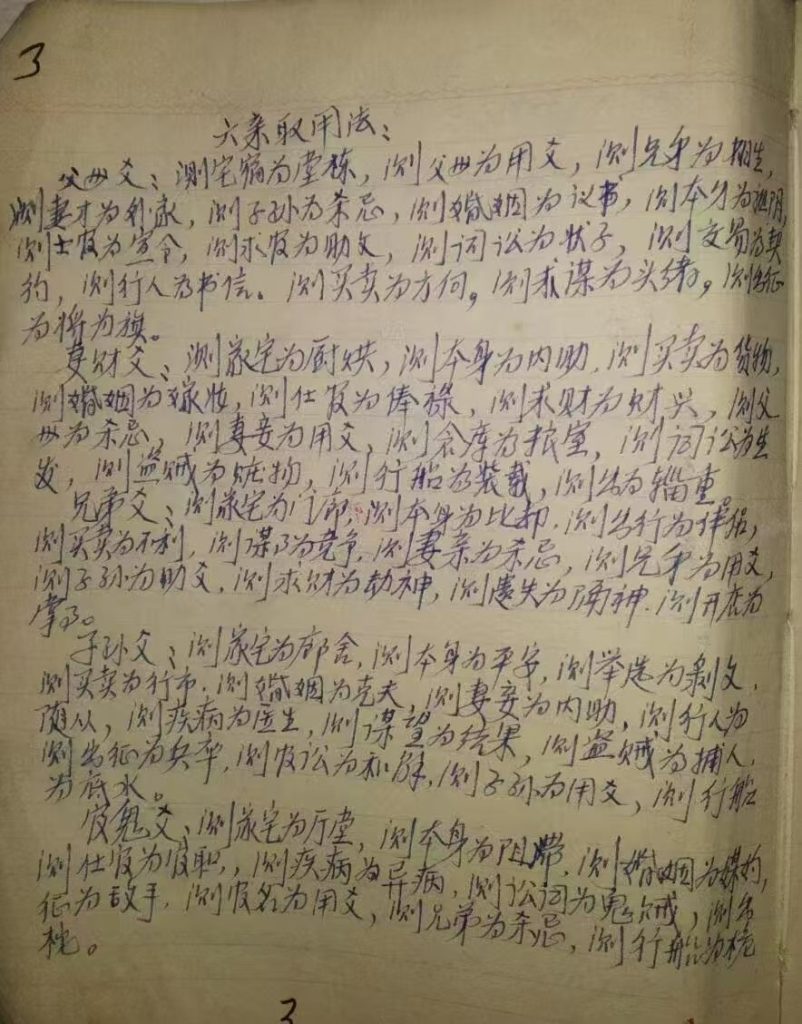 3
六亲取用法：
父母爻：测宅窗为堂栋，测父母为用爻，测兄弟为相生，
测妻才为外家，测子孙为杀忌，测婚姻为议书，测本身为
测士官为宣令，测求官为助文，测词讼为状子，测交易为契
约，测行人为书信。测买卖为方向。测求谋为头绪。测出征
为将为旗。
妻财爻：测家宅为厨烘，测本身为内助，测买卖为货物，
测婚姻为嫁妆，测仕官为俸禄，测求财为财兴，测父
母为杀忌，测妻妾为用爻，测仓库为粮室，测词讼为生
发，测盗贼为赃物，测行船为装载，测出为辎重。
兄弟爻：测家宅为门廊，测本身为比却，测出行为伴侣，
测买卖为不利，测谋为竞争，测妻亲为杀忌，测兄弟为用爻，
测子孙为助爻，测求财为劫神，测遗失为神，测开店为
子孙爻：测家宅为廊舍，测本身为平安，测举选为剥文，
测买卖为行市，测婚姻为克夫，测妻妾为内助，测行人为
随从，测疾病为医生，测谋望为结果，测盗贼为捕人，
测出征为兵卒，测官讼为和解，测子孙为用爻，测行船
为底水。
官鬼爻：测家宅为厅堂，测本身为阻滞，测婚姻为媒妁，
测仕官为官职，测疾病为异病，测讼词为鬼贼，测出
征为敌手，测官名为用爻，测兄弟为杀忌，测行船为桅
桅。
3